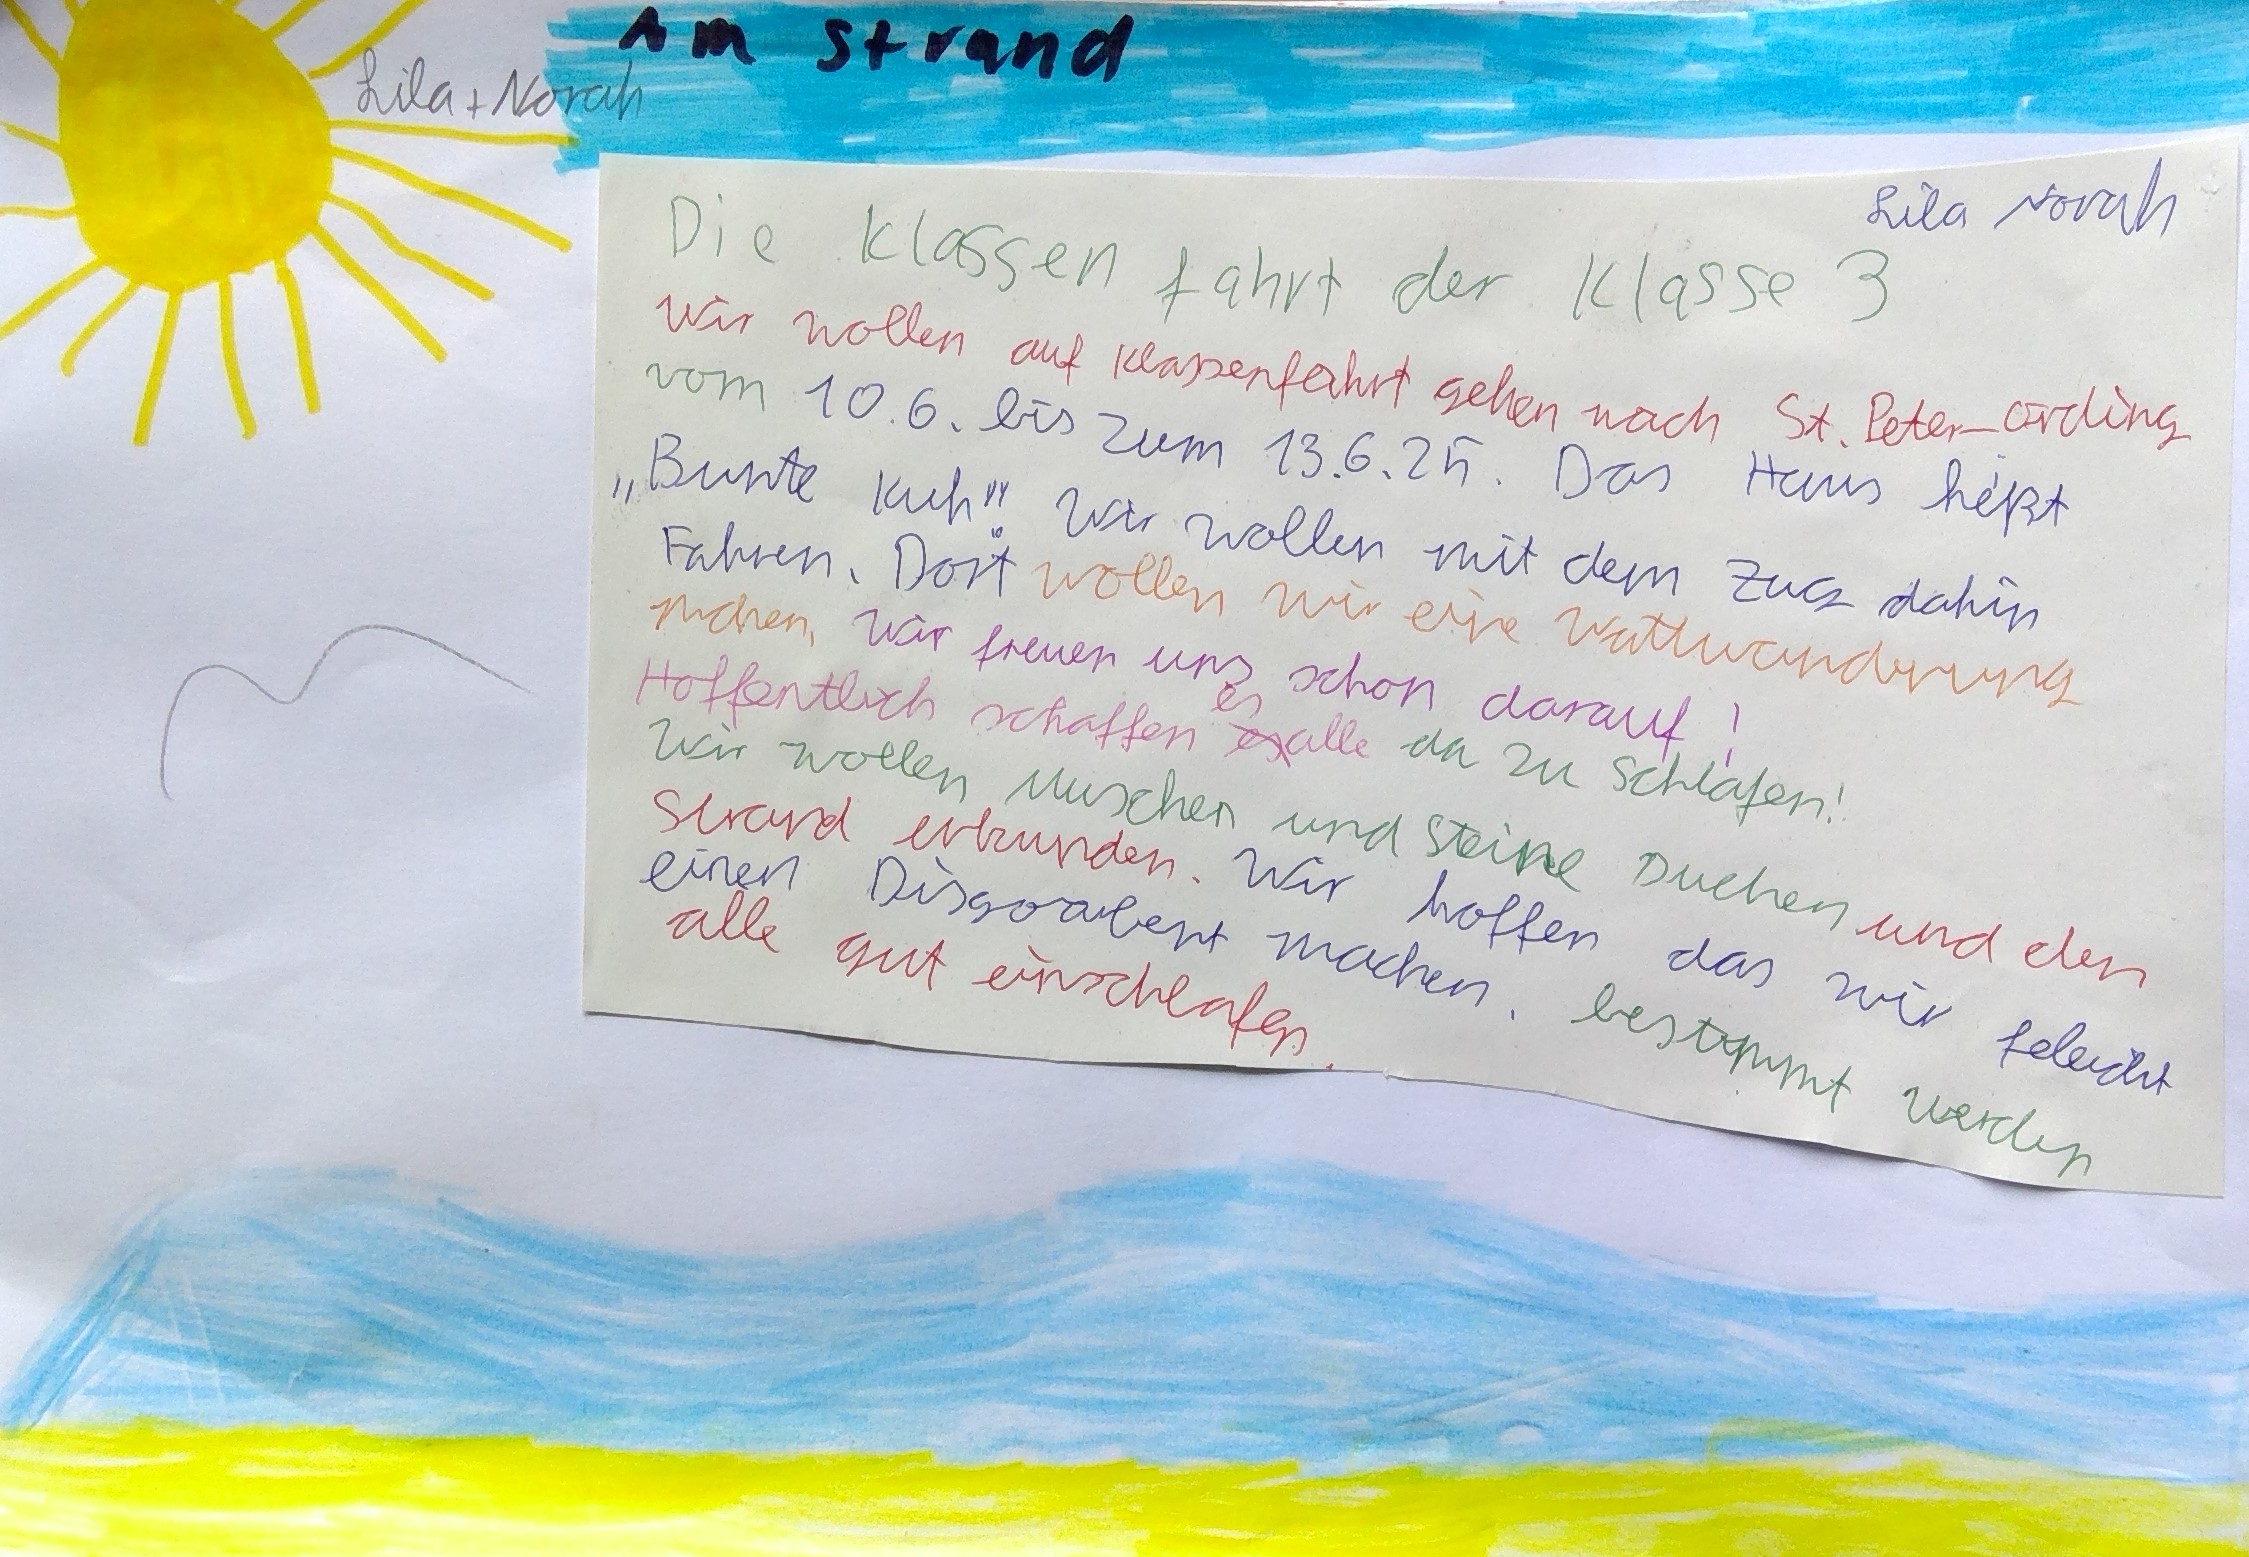 Am Strand
Lila + Norah
Lila Norah
Die Klassen fahrt der Klasse 3
Wir wollen auf Klassenfahrt gehen nach St. Peter-Ording
vom 10.6. bis zum 13.6.25. Das Haus heißt
„Bunte Kuh" Wir wollen mit dem Zug dahin
Fahren. Dort wollen wir eine Wattwanderung
machen, Wir freuen uns schon darauf!
Hoffentlich schaffen es alle da zu Schlafen!
Wir wollen Muscheln und Steine Suchen und den
Strand erkunden. Wir hoffen das wir feleicht
einen Disgoabent machen. bestimmt werden
alle gut einschlafen.